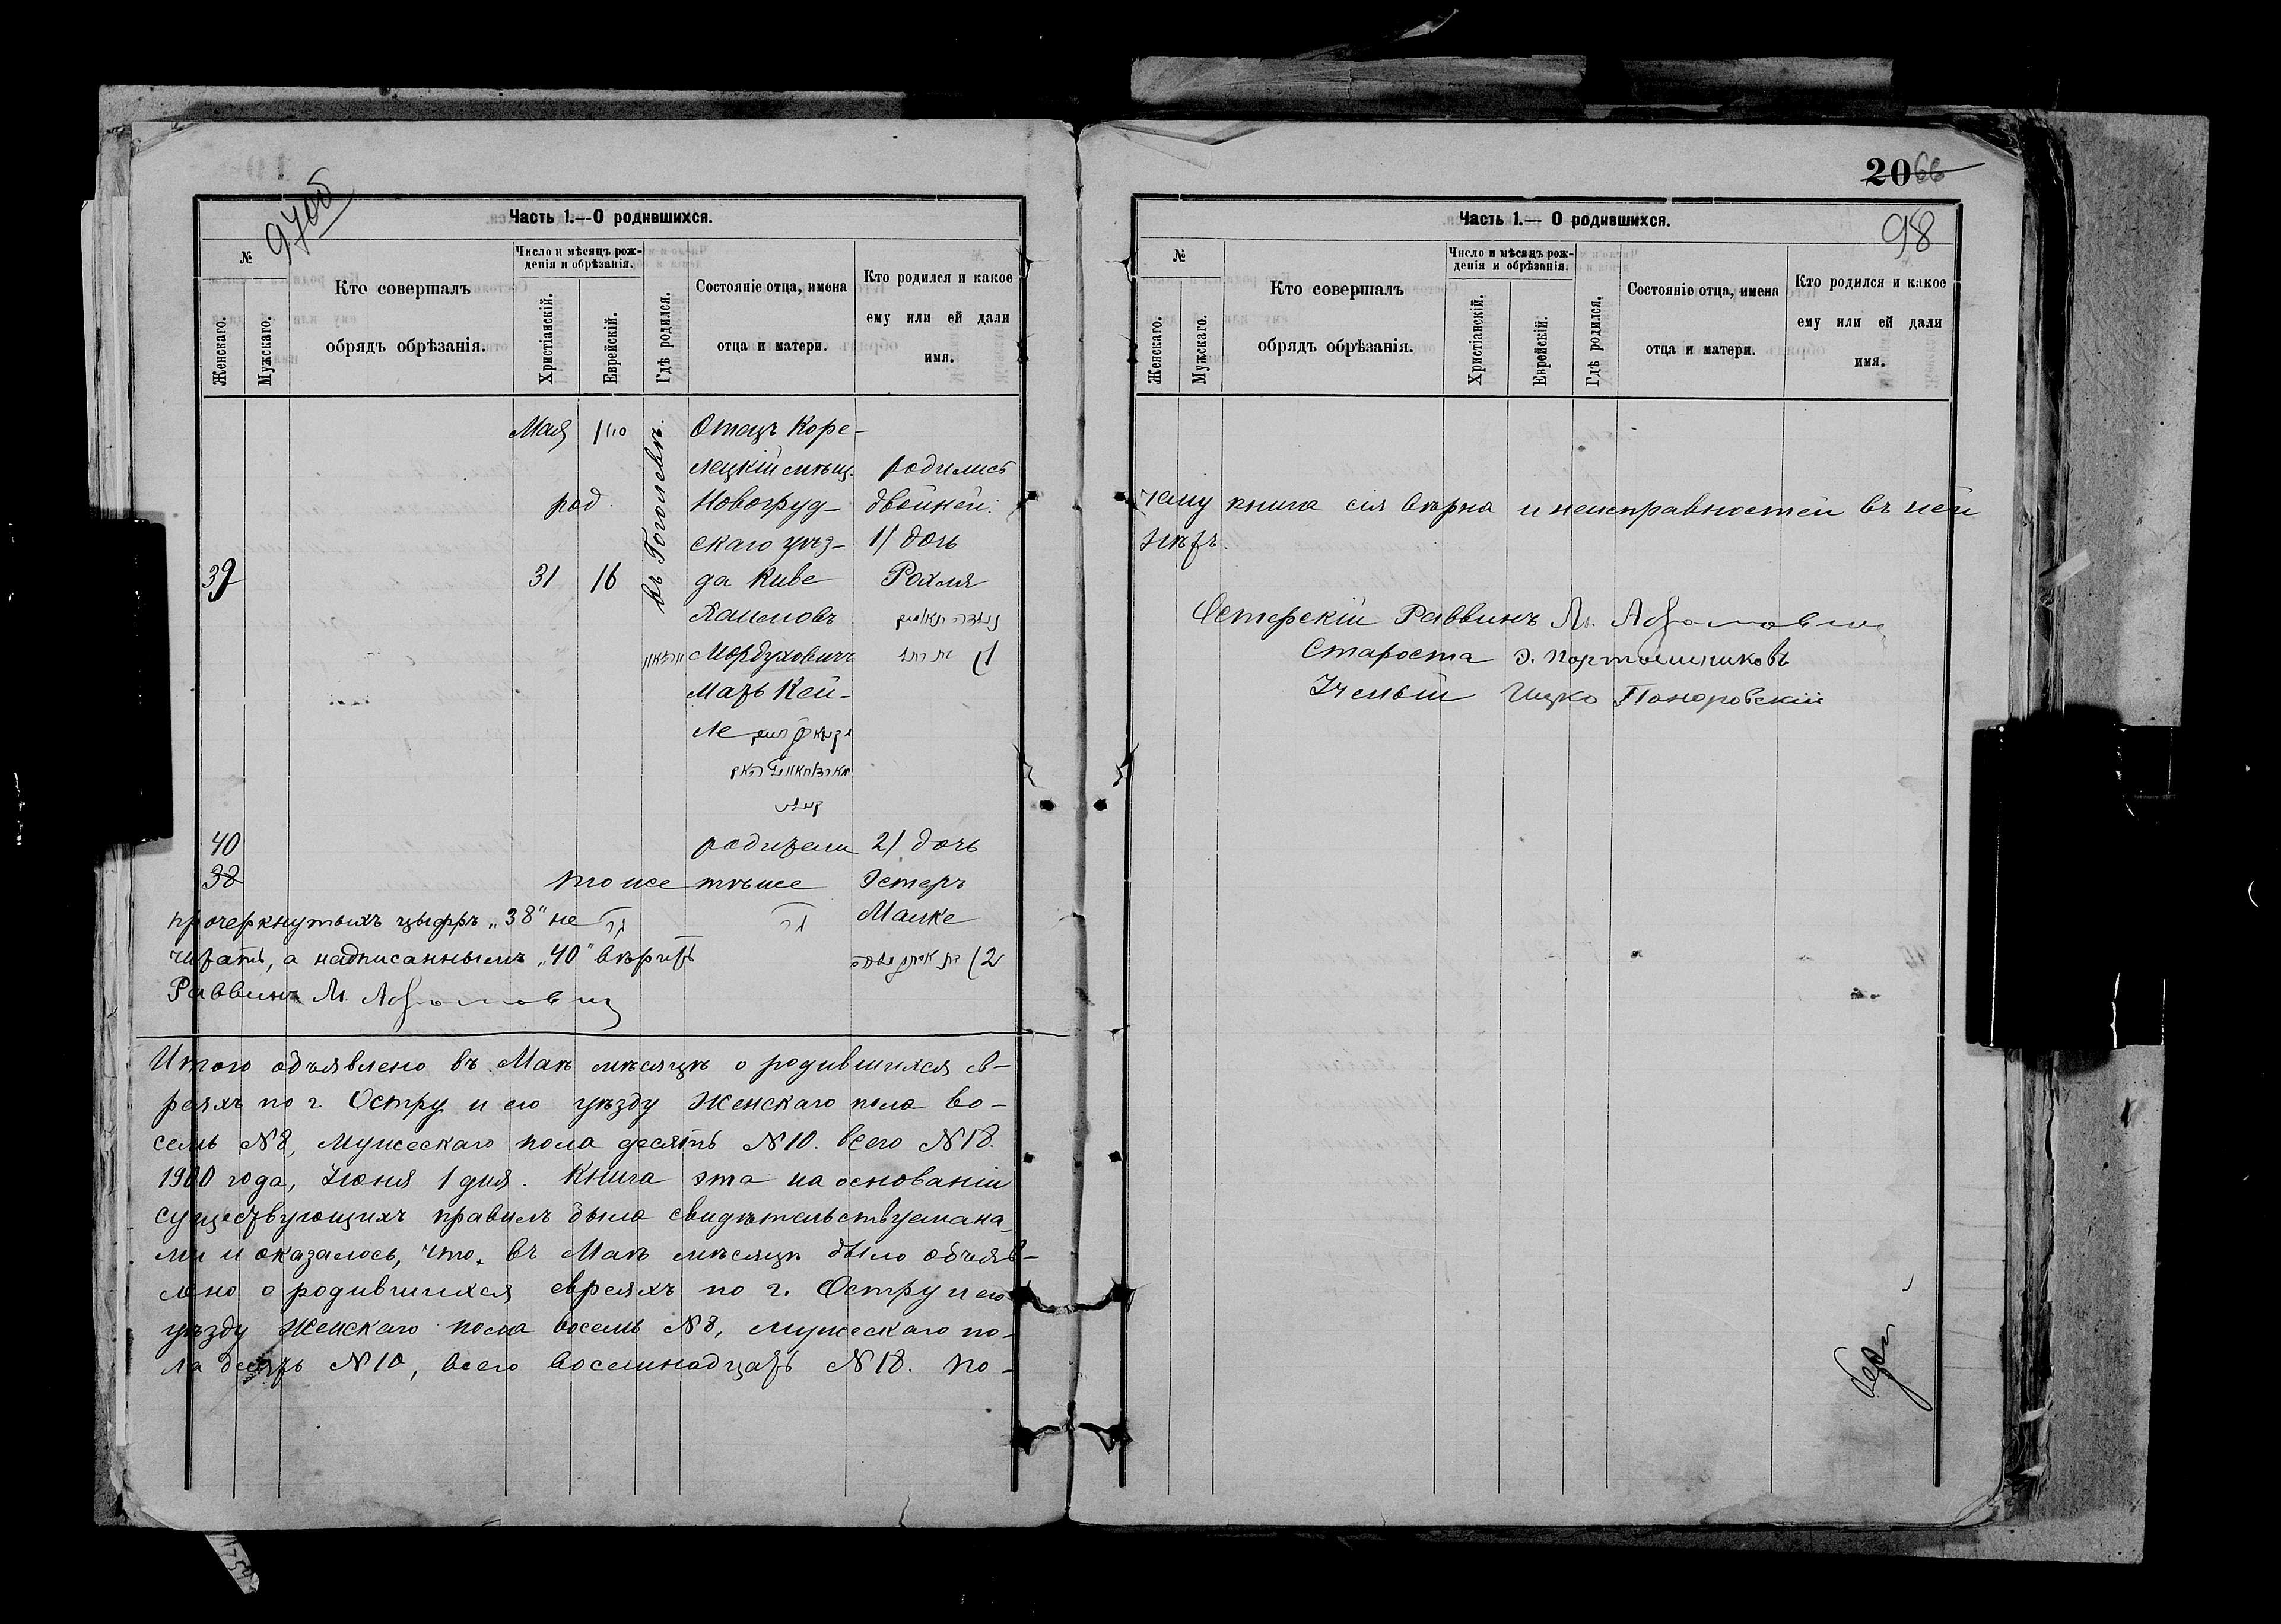 97об
Часть 1.—О родившихся.
№
Женскаго.
Мужскаго.
Кто совершалъ
обрядъ обрѣзанія.
Число и мѣсяцъ рож-
денія и обрѣзанія.
Христіанскій.
Еврейскій.
Гдѣ родился.
Состояніе отца, имена
отца и матери.
Кто родился и какое
ему или ей дали
имя.
Мая
въ Гоголевѣ.
Отецъ Коре-
лецкій мѣщ. родились
род. Новогруд- двойней:
скаго уѣз- 1/ дочь
39 31 16 да Киве Рохля
Хаимовъ
Мордуховичъ
Мать Кей-
ле
40 родители 2/ дочь
38 тоже тѣже Эстеръ
прочеркнутыхъ цыфръ „38“ не Малке
читать, а надписаннымъ „40“ вѣрить
Раввинъ М.
Итого объявлено въ Маѣ мѣсяцѣ о родившихся ев-
реяхъ по г. Остру и его уѣзду Женскаго пола во-
семь №8, Мужескаго пола десять №10. всего №18.
1900 года, Іюня 1 дня. Книга эта на основаніи
существующихъ правилъ была свидѣтельствуема на-
ми и оказалось, что въ Маѣ мѣсяцѣ было объяв-
лено о родившихся евреяхъ по г. Остру и его
уѣзду Женскаго пола восемь №8, мужескаго по-
ла десять №10, всего восемнадцать №18. По-
20 66
98
Часть 1.— О родившихся.
№
Женскаго.
Мужскаго.
Кто совершалъ
обрядъ обрѣзанія.
Число и мѣсяцъ рож-
денія и обрѣзанія.
Христіанскій.
Еврейскій.
Гдѣ родился.
Состояніе отца, имена
отца и матери.
Кто родился и какое
ему или ей дали
имя.
чему книга сія вѣрна и неисправностей въ ней
нѣтъ.
Остерскій Раввинъ М.
Староста Э. Портошниковъ
Ученый Ицко Поноровскій